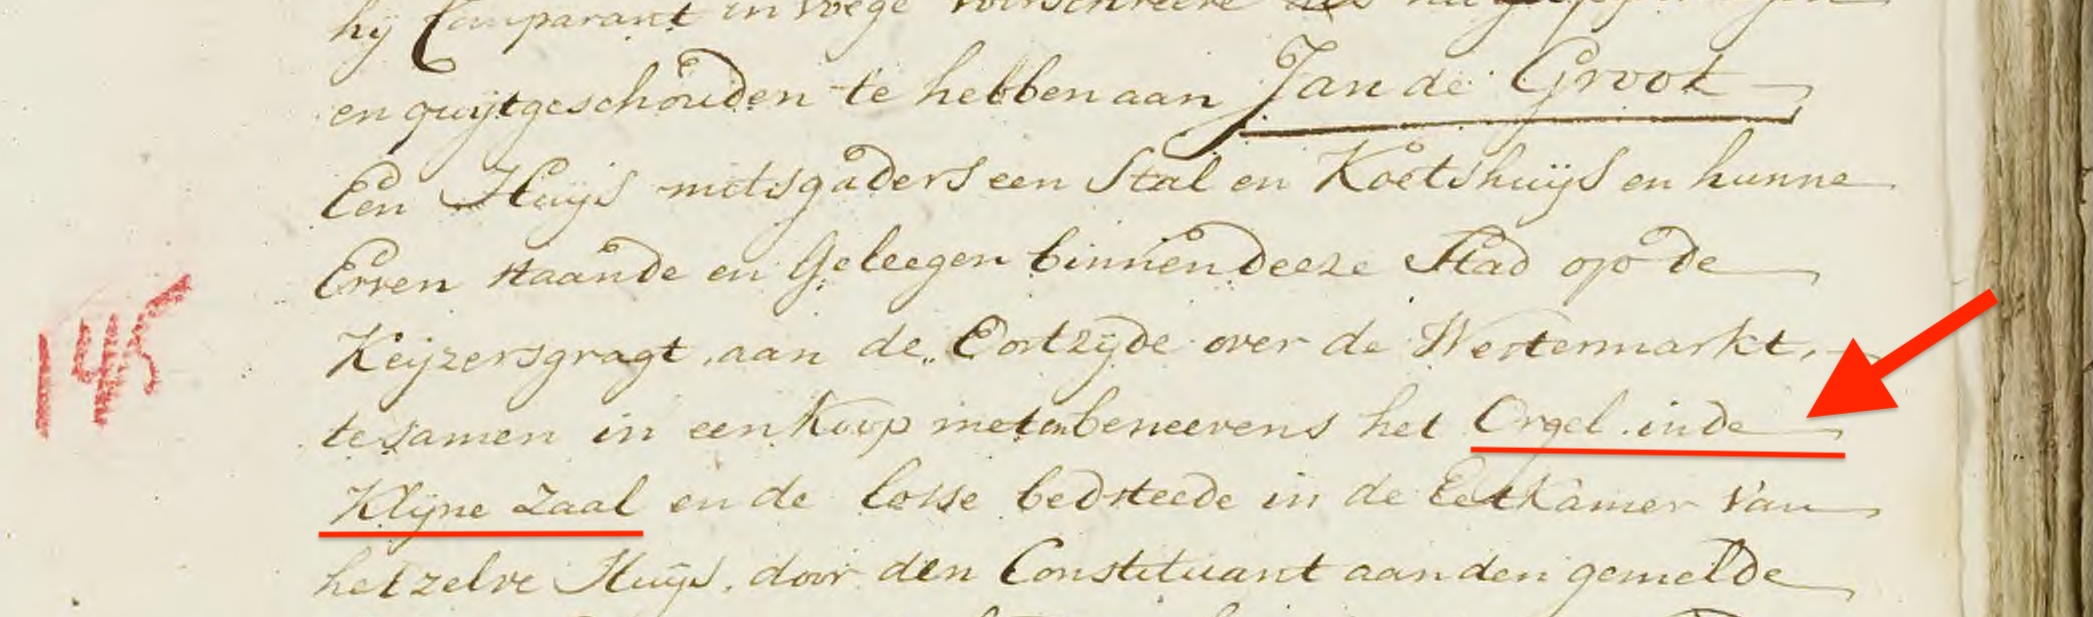 hij Comparant in voege voorschreeve
en quijtgeschouden te hebben aan Jan de Groot
Een Huijs mitsgaders een Stal en Koetshuijs en hunne
Erven staande en Geleegen binnen deeze Stad op de
145
Keijzersgragt, aan de Oostzijde over de Westermarkt,
te zamen in een koop met en beneevens het Orgel in de
Klijne Zaal en de losse bedsteede in de Eetkamer van
hetzelve Huijs, door den Constituant aan den gemelde